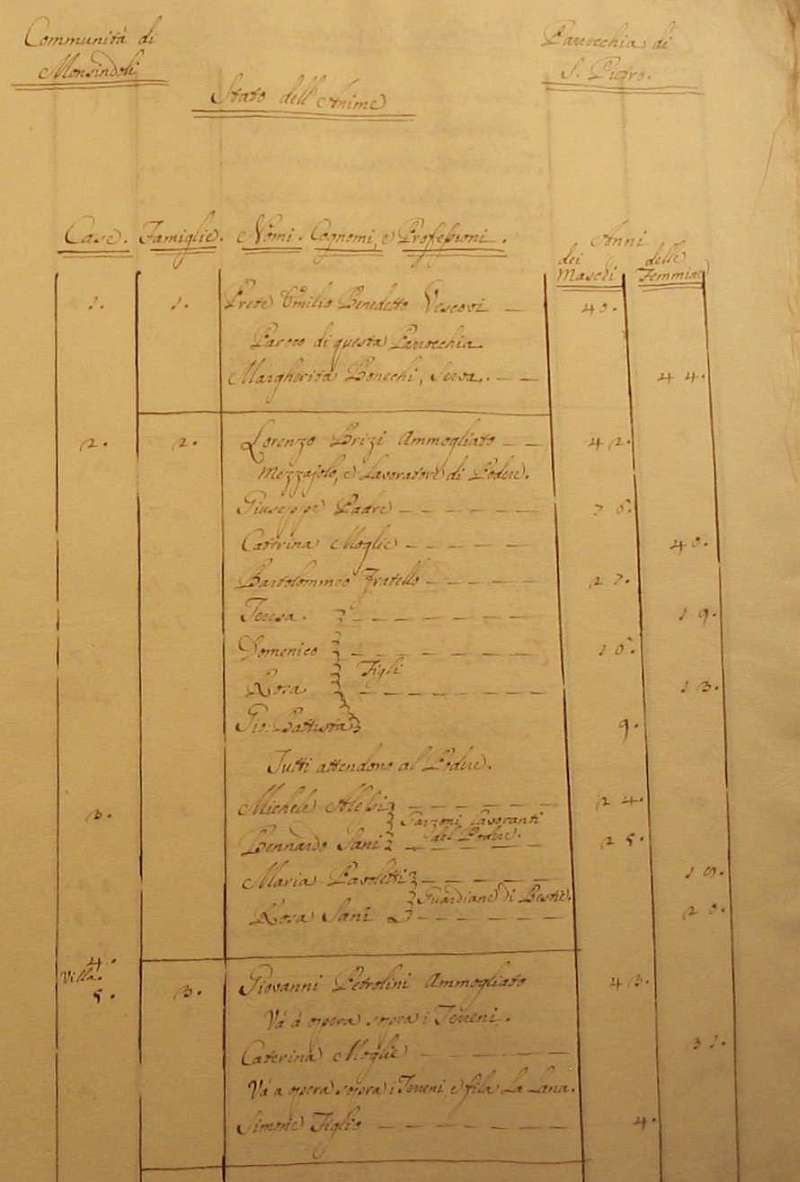 Communità di
Monsindoli
Parocchia di
S. Pietro.
Stato dell'Anime
Case. Famiglie. Nomi. Cognomi, e Professioni. Anni
dei Maschi delle Femmine
1. 1. Prete Emilio Benedetto Vescovi — 43.
Paroco di questa Parocchia
Margherita Bonechi, Serva. — — 44.
2. 2. Lorenzo Brizi Ammogliato — — 42.
Mezzajolo, e Lavoratore di Podere.
Giuseppe Padre — — — — —
Caterina Moglie — — — — — 43.
Bartolommeo Fratello — — — — 27.
Teresa. — — — — — 19.
Domenico — — — — — 16.
Figli
Rosa — — — — — 13.
Gio: Battista 9.
Tutti attendono al Podere.
3. Michele — — — — — 24.
Garzoni lavoranti
del Podere.
Bernardo Sani — — — — 25.
Maria — — — — 19.
Guardiane di Bestie.
Rosa Sani — — — — 23.
4.
Villa.
5. 3. Giovanni Petrolini Ammogliato 43.
Và a opera, sopra i Terreni.
Caterina Moglie — — — — — 31.
Và a opera, sopra i Terreni e fila La Lana.
Simone Figlio — — — — — 4.